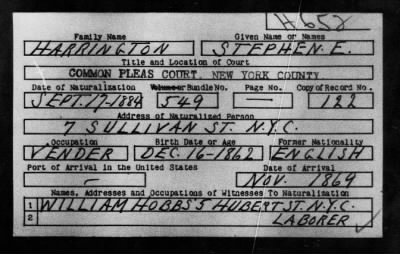 H652
Family Name Given Name or Names
HARRINGTON STEPHEN. E.
Title and Location of Court
COMMON PLEAS COURT, NEW YORK COUNTY
Date of Naturalization Volume or Bundle No. Page No. Copy of Record No.
SEPT. 17-1884 549 — 122
Address of Naturalized Person
7 SULLIVAN ST. N.Y.C.
Occupation Birth Date or Age Former Nationality
VENDER DEC. 16-1862 ENGLISH
Port of Arrival in the United States Date of Arrival
— NOV. 1869
Names, Addresses and Occupations of Witnesses To Naturalization
1 WILLIAM HOBBS 5 HUBERT ST. N.Y.C.
2 LABORER